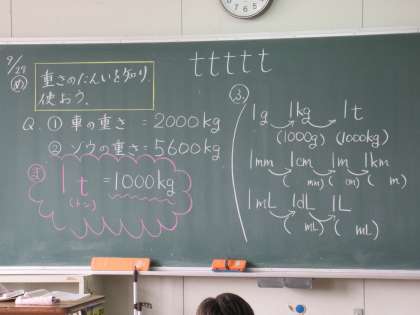 9/27
め 重さのたんいを知り
使おう。
Q. ① 車の重さ = 2000kg
② ゾウの重さ = 5600kg
ま 1t = 1000kg
(トン)
ttttt
③
1g 1kg 1t
(1000g) (1000kg)
1mm 1cm 1m 1km
( mm) ( cm) ( m)
1mL 1dL 1L
( mL) ( mL)